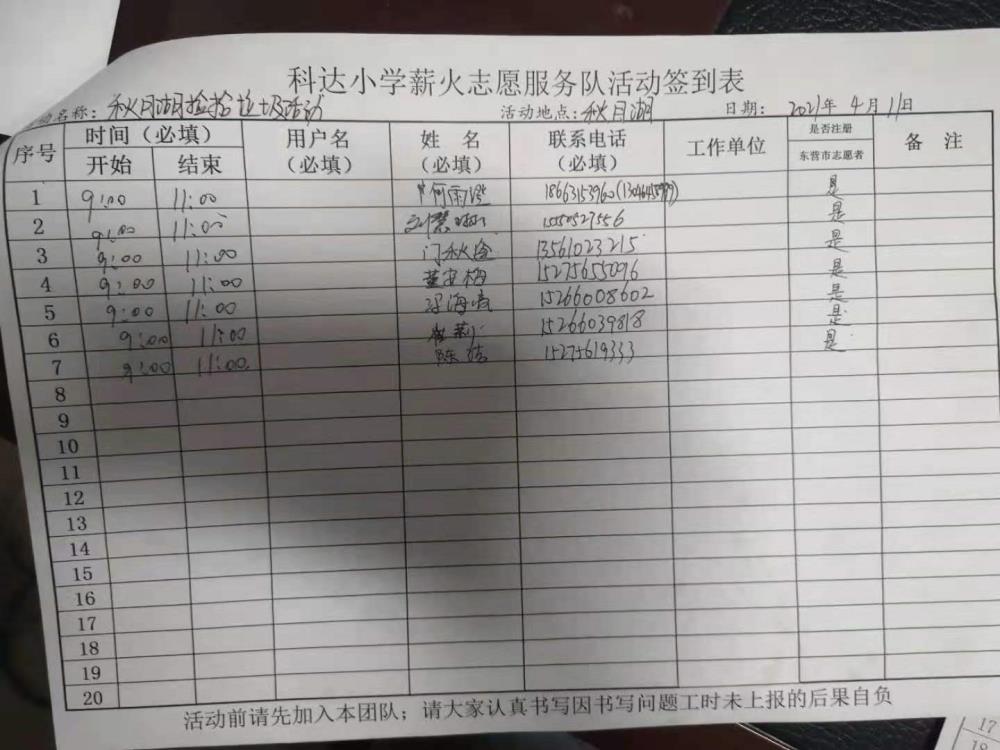 科达小学薪火志愿服务队活动签到表
名称：秋月湖捡拾垃圾活动 活动地点：秋月湖 日期：2021年4月11日
序号 时间（必填） 用户名（必填） 姓名（必填） 联系电话（必填） 工作单位 是否注册东营市志愿者 备注
开始 结束
1 9:00 11:00 何雨澄 18663153960 是
2 9:00 11:00 15550527556 是
3 9:00 11:00 门秋 13561023215 是
4 9:00 11:00 董安梅 15275655096 是
5 9:00 11:00 海 15266008602 是
6 9:00 11:00 崔莉 15266039818 是
7 9:00 11:00 陈洁 15275619333 是
8
9
10
11
12
13
14
15
16
17
18
19
20
活动前请先加入本团队；请大家认真书写因书写问题工时未上报的后果自负
17